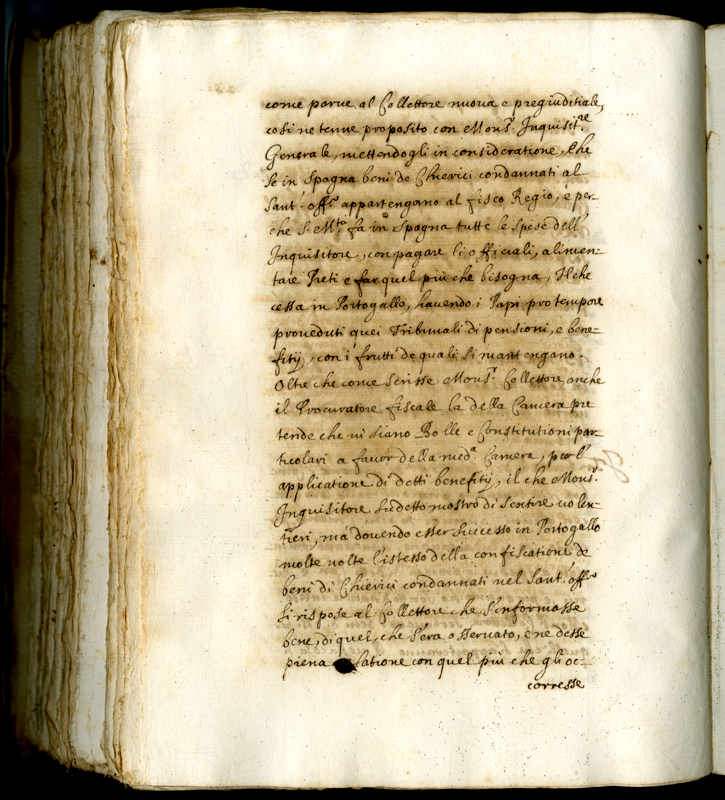 come parue al Collettore nuoua e pregiuditiale,
cosi ne tenne proposito con Mons.r Inquisit.re
Generale, mettendogli in consideratione, che
se in Spagna beni de Chierici condannati al
Sant' Off.o appartengano al fisco Regio, è per-
che S. M.tà fa in Spagna tutte le spese dell'
Inquisitore, con pagare li officiali, alimen-
tare Preti e far quel più che bisogna, Il che
cessa in Portogallo, hauendo i Papi pro tempore
proueduti quei Tribunali di pensioni, e bene-
fitij, con i frutti de quali si mantengano.
Oltre che come scrisse Mons.r Collettore, anche
il Procuratore fiscale la della Camera pre-
tende che ui siano Bolle e Constitutioni par-
ticolari a fauor della med.a Camera, p
applicatione di detti benefitij, il che Mons.r
Inquisitore sudetto mostrò di sentire uolen-
tieri, mà douendo esser successo in Portogallo
molte uolte l'istesso della confiscatione de
beni di Chierici condannati nel Sant' Off.o
si rispose al Collettore che s'informasse
bene, di quel, che s'era osseruato, e ne desse
piena latione con quel più che gli oc-
corresse